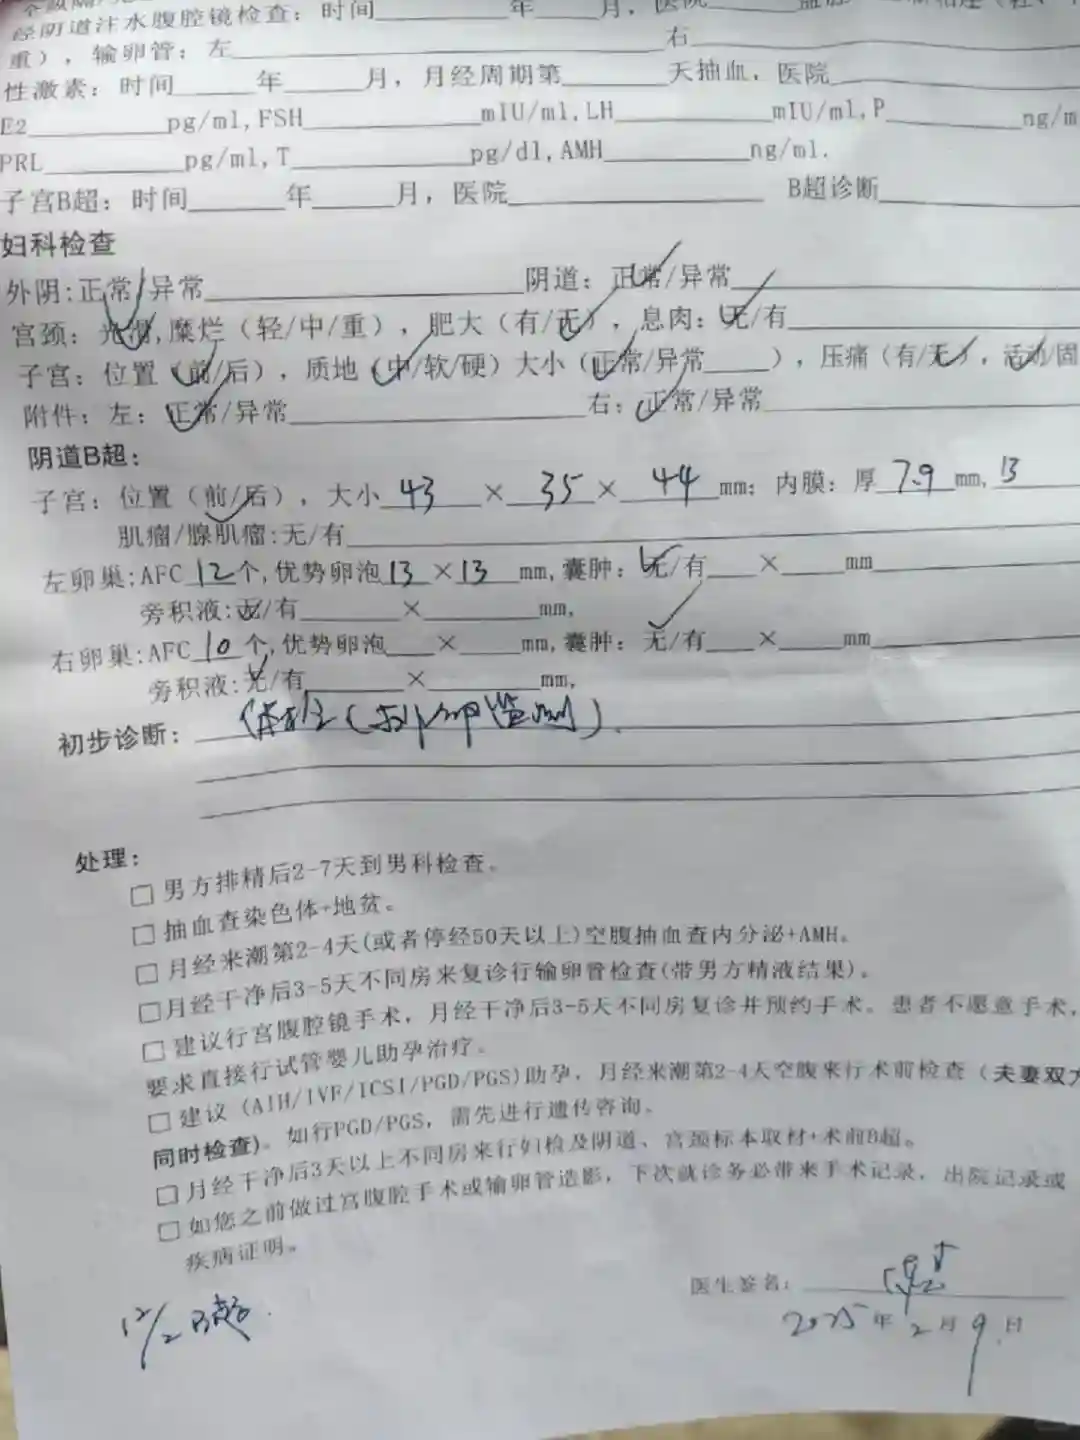 经阴道注水腹腔镜检查：时间____年____月，医院
重），输卵管：左____右____
性激素：时间____年____月，月经周期第____天抽血，医院____
E2____pg/ml,FSH____mIU/ml,LH____mIU/ml,P____ng/m
PRL____pg/ml,T____pg/dl,AMH____ng/ml.
子宫B超：时间____年____月，医院____ B超诊断____
妇科检查
外阴:正常/异常____阴道：正常/异常____
宫颈：光滑,糜烂（轻/中/重），肥大（有/无），息肉：无/有____
子宫：位置（前/后），质地（中/软/硬）大小（正常/异常____），压痛（有/无），活动/固
附件：左：正常/异常____右：正常/异常____
阴道B超：
子宫：位置（前/后），大小 43 × 35 × 44 mm；内膜：厚 7.9 mm, 13
肌瘤/腺肌瘤:无/有____
左卵巢:AFC 12 个,优势卵泡 13 × 13 mm,囊肿：无/有____×____mm____
旁积液:无/有____×____mm,
右卵巢:AFC 10 个,优势卵泡____×____mm,囊肿：无/有____×____mm____
旁积液:无/有____×____mm,
初步诊断： (排卵监测)
处理：
□ 男方排精后2-7天到男科检查。
□ 抽血查染色体+地贫。
□ 月经来潮第2-4天(或者停经50天以上)空腹抽血查内分泌+AMH。
□ 月经干净后3-5天不同房来复诊行输卵管检查(带男方精液结果)。
□ 建议行宫腹腔镜手术，月经干净后3-5天不同房复诊并预约手术。患者不愿意手术，
要求直接行试管婴儿助孕治疗。
□ 建议（AIH/IVF/ICSI/PGD/PGS)助孕，月经来潮第2-4天空腹来行术前检查（夫妻双方
同时检查)。如行PGD/PGS，需先进行遗传咨询。
□ 月经干净后3天以上不同房来行妇检及阴道、宫颈标本取材+术前B超。
□ 如您之前做过宫腹腔手术或输卵管造影，下次就诊务必带来手术记录，出院记录或
疾病证明。
医生签名：
12/2 B超.
2025年2月9日